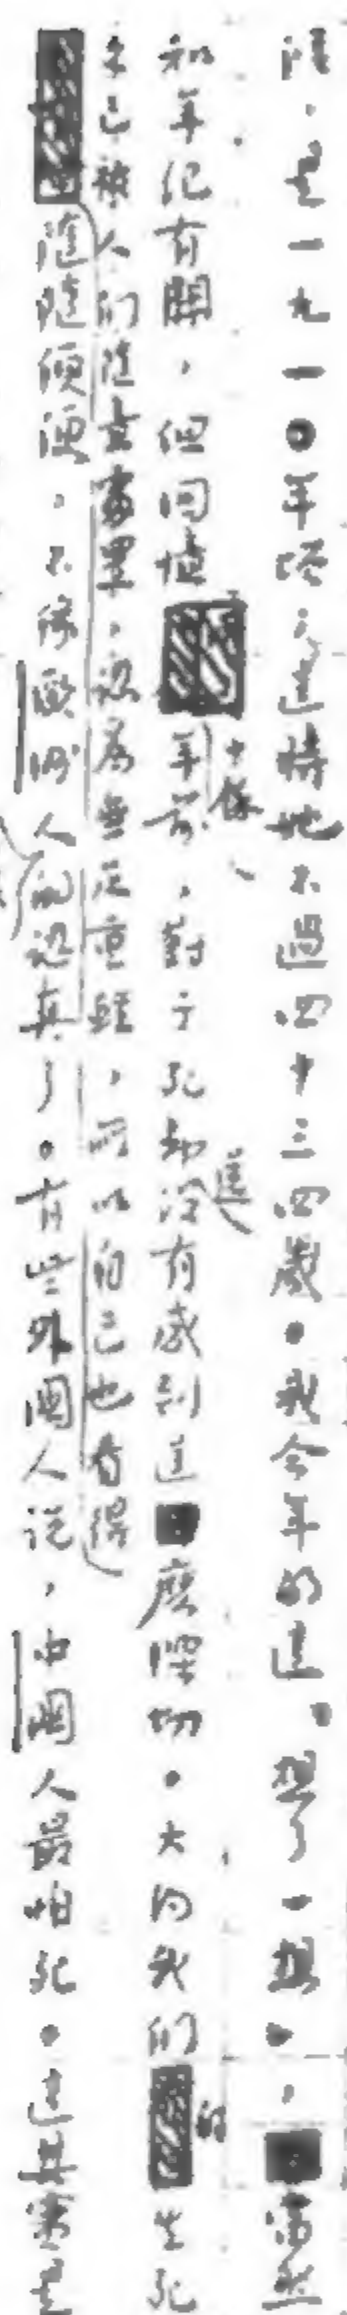 ，是一九一〇年，這時她不過四十三四歲。我今年的這。想了一想，當然
和年紀有關，但回憶十餘年前，對于死卻還沒有感到這麼深切。大約我們的生死
久已被人們隨意處置，認為無足重輕，所以自己也看得
隨隨便便，不像歐洲人認真了。有些外國人說，中國人最怕死。這其實是